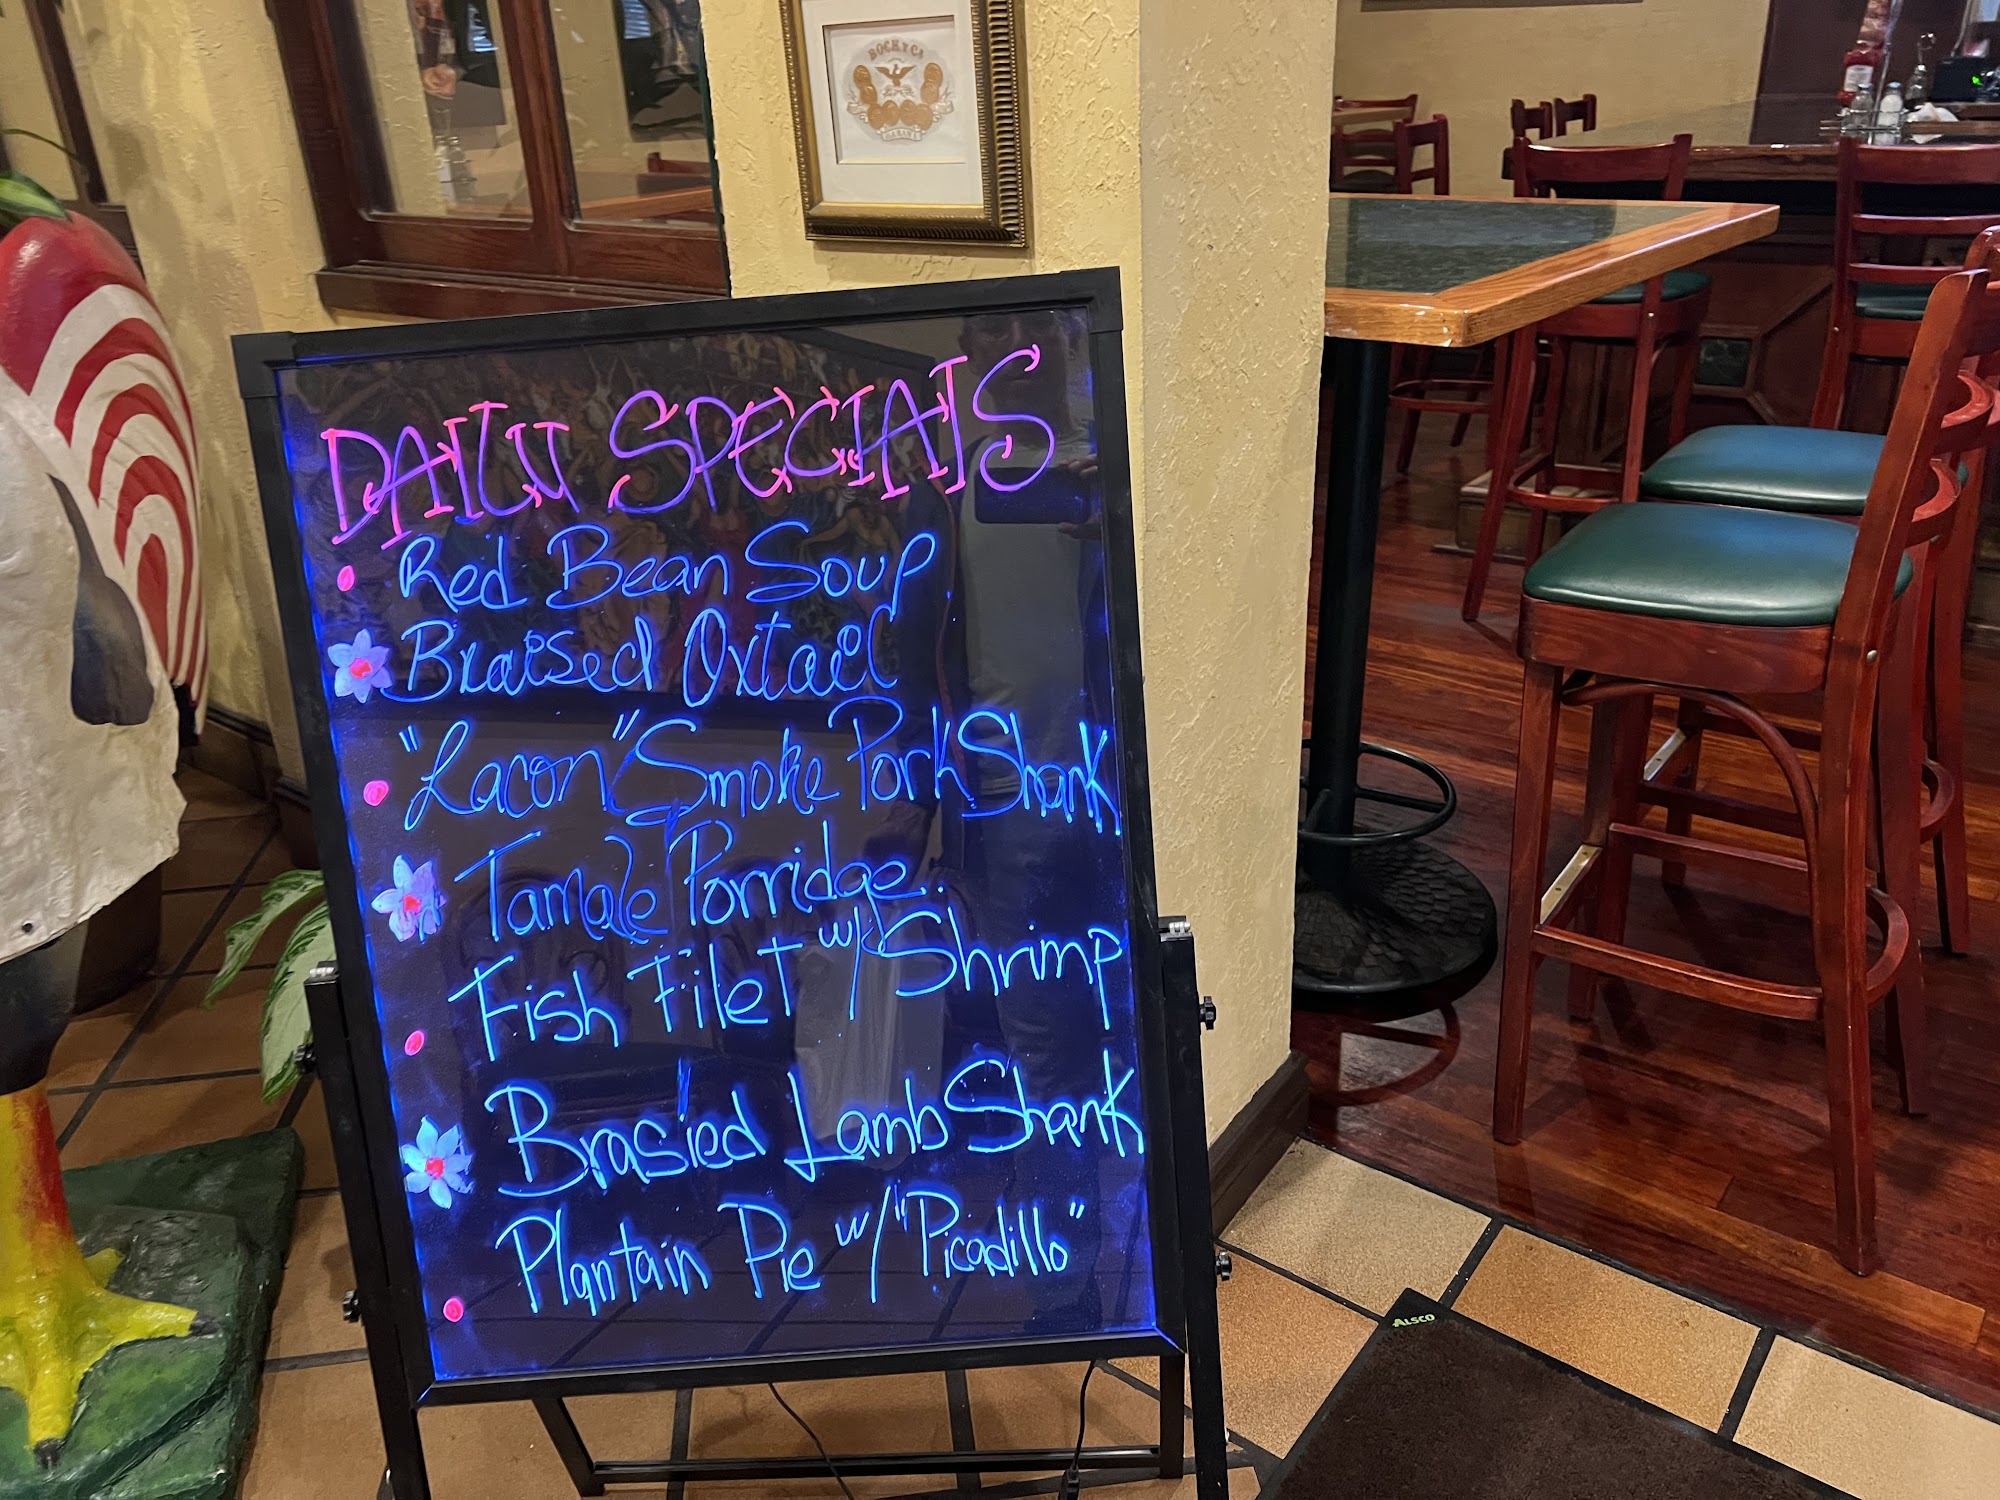 BOCK Y CA
HABANA
DAILY SPECIALS
Red Bean Soup
Braised Oxtail
"Lacon" Smoke Pork Shank
Tamale Porridge.
Fish Filet w/ Shrimp
Brasied Lamb Shank
Plantain Pie w/ "Picadillo"
ALSCO